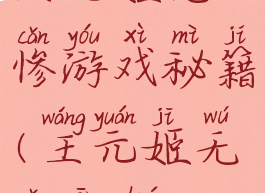 cǎn yóu xì mì jí
惨游戏秘籍
wáng yuán jī wú
(王元姬无